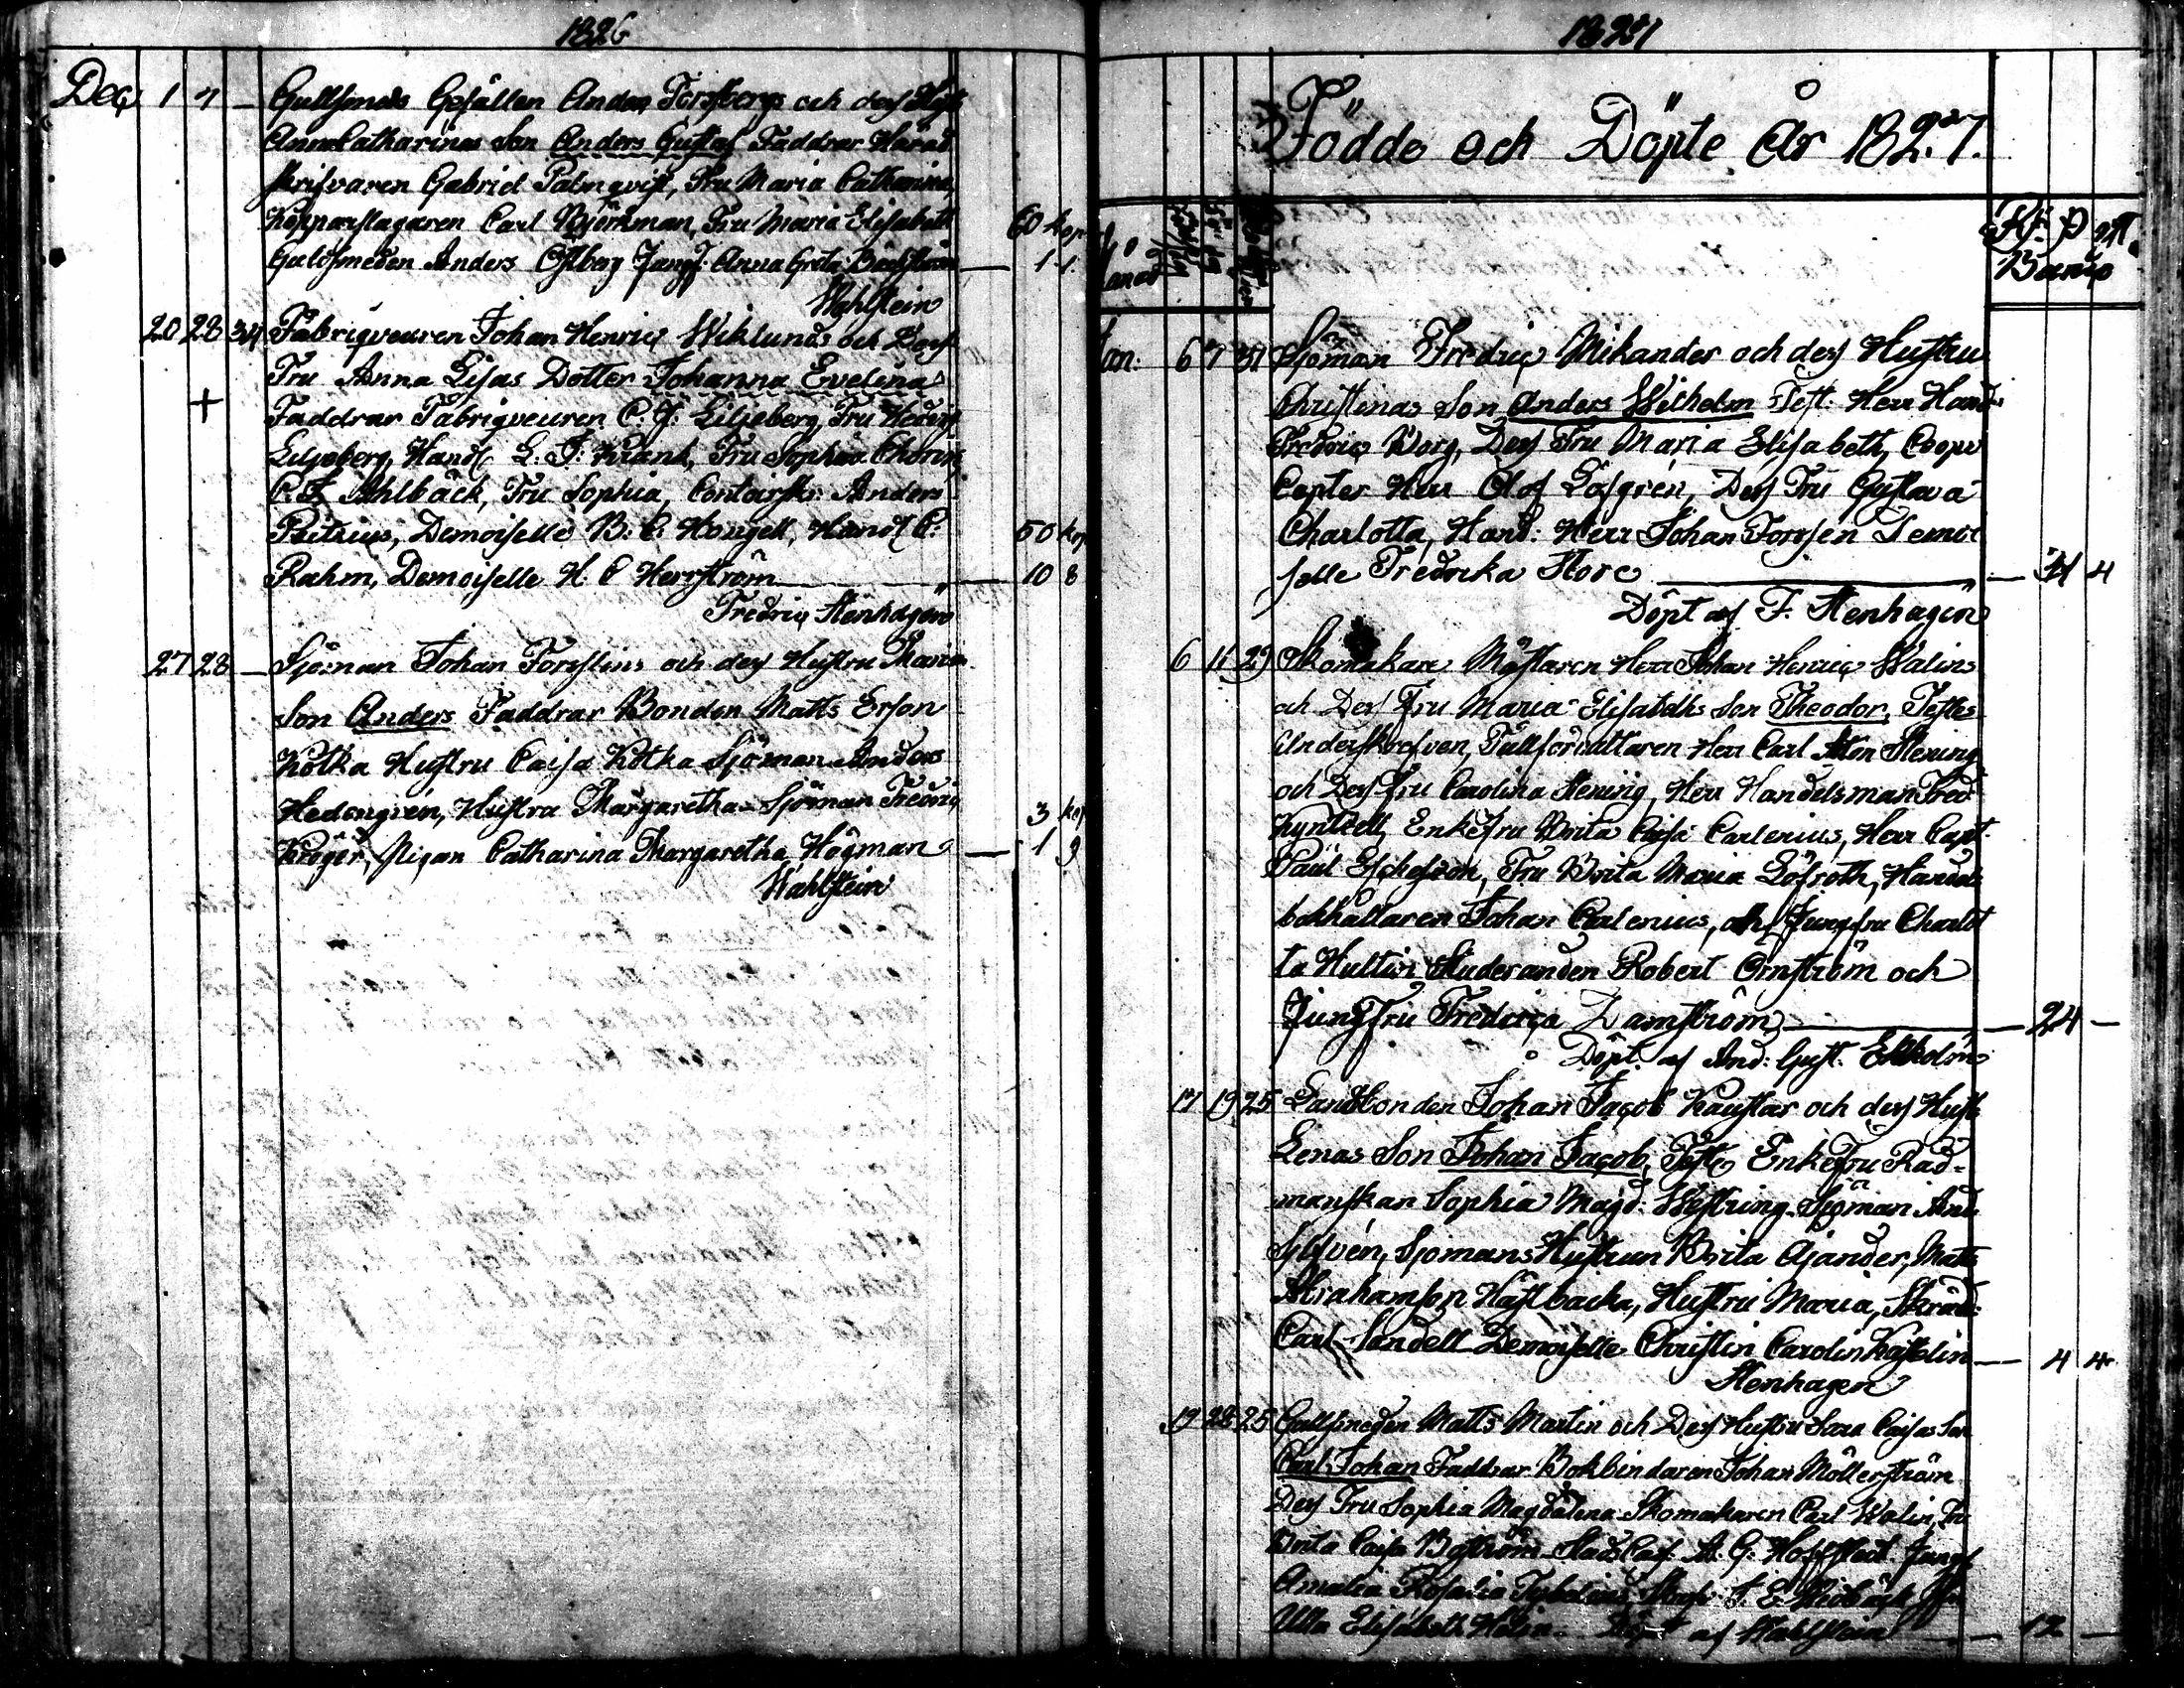 1826
Dec 1 7 — Gullsmeds Gesällen Anders Forsbergs och dess Hust
Anna Catharinas Son Anders Gustaf Faddrar Härads
skrifvaren Gabriel Palmqvist, Fru Maria Catharina,
Kopparslagaren Carl Björkman, Fru Maria Elisabeth 60 kop
Guldsmeden Anders Ostberg Jungf: Anna Greta Bäckström — 1 1.
Wahlstein
20 28 34 Fabriqveuren Johan Henric Wiklunds och Dess
Fru Anna Lisas Dotter Johanna Evelina
+ Faddrar Fabriqveuren C. G. Liljeberg, Fru Hedvig
Liljeberg, Handl L. J. Krank, Fru Sophia
C. J. Ahlbäck, Fru Sophia, Contorsks: Anders
Petrius, Demoiselle B. C. Hongell, Handl C. 50 kop
Rahm, Demoiselle H. C Herrström — 10 8
Fredric Stenhagen
27 28 — Sjöman Johan Forsslins och dess Hustru Marias
Son Anders Faddrar Bonden Matts Erson
Kotka Hustru Caisa Kotka Sjöman Anders
Hedengrén, Hustru Margaretha Sjöman Fredric 3 kop
Kröger, Pigan Catharina Margaretha Högman — 1 9
Wahlstein
1827
Födde och Döpte År 1827.
Månad
Barnhus
Jan: 6 7 31 Sjöman Fredric Mikander och dess Hustru
Christinas Son Anders Wilhelm Test: Herr Hand:
Fredric Borg, Dess Fru Maria Elisabeth, Coopv
Capten Herr Olof Löfgrén, Dess Fru Gustava
Charlotta, Hand: Herr Johan Forssén Demoi
selle Fredrika Store — 4
Döpt af F. Stenhagen
6 11 29 Skomakare Mästaren Herr Johan Henric Walins
och Dess Fru Maria Elisabeths Son Theodor, Testes
Underskrefven, Tullförvaltaren Herr Carl Stening
och Dess Fru Carolina Stening, Herr Handelsman Fred
Kyntzell, Enkefru Brita Caisa Carlenius, Herr Capt.
Paul Fru Brita Maria Löfroth, Handels
bokhållaren Johan Carlenius, och Jungfru Charlot
ta Hultin, Studeranden Robert Örnström och
Jungfru Fredrica Damström — 24 —
Döpt af And: Gust. Ekholm
17 19 25 Landbonden Johan Jacob Kaustar och dess Hust
Lenas Son Johan Jacob, Test: Enkefru Råd-
manskan Sophia Magd: Westring, Sjöman And
Sylfvén, Sjömans Hustrun Brita Ajander, Matts
Abrahamson Hästbacka, Hustru Maria, Skrädd:
Carl Sandell Demoiselle Christin Carolin — 4 4
Stenhagen
19 22 25 Gullsmeden Matts Martin och Dess Hustru Sara Caisas Son
Carl Johan Faddrar Bokbindaren Johan Möllerström
Dess Fru Sophia Magdalena Skomakaren Carl Walin, Fru
Brita Caisa A. G. Jungf
Amalia Rosalia
Ulla Elisabeth Holm — Döpt af Wahlstein — 12 —